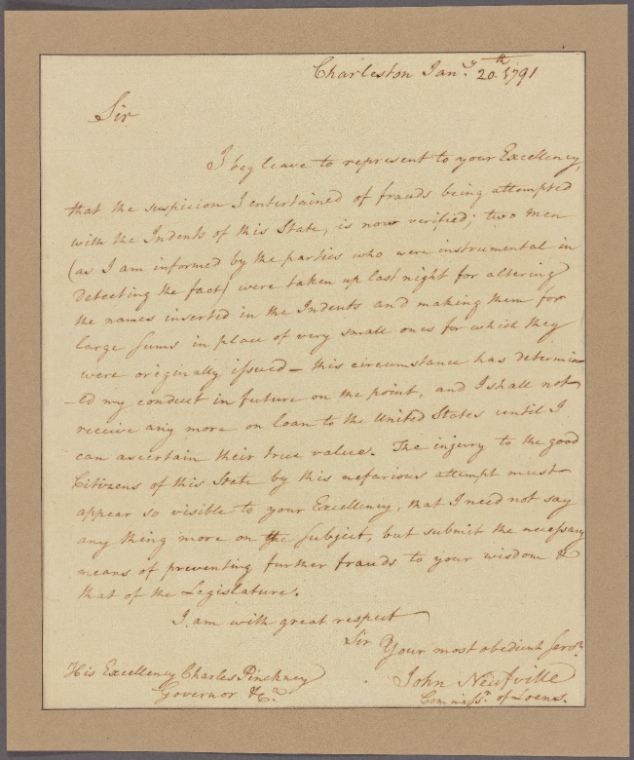 Charleston Jany. 20th. 1791
Sir
I beg leave to represent to your Excellency,
that the suspicion I entertained of frauds being attempted
with the Indents of this State, is now verified; two men
(as I am informed by the parties who were instrumental in
detecting the fact) were taken up last night for altering
the names inserted in the Indents and making them for
large sums in place of very small ones for which they
were originally issued – this circumstance has determin
–ed my conduct in future on the point, and I shall not
receive any more on loan to the United States until I
can ascertain their true value. The injury to the good
Citizens of this State by this nefarious attempt must
appear so visible to your Excellency, that I need not say
any thing more on the subject, but submit the necessary
means of preventing further frauds to your wisdom &
that of the Legislature.
I am with great respect
Sir Your most obedient Servt.
His Excellency Charles Pinckney
John Neufville
Governor &Ca.
Commissr. of Loans.